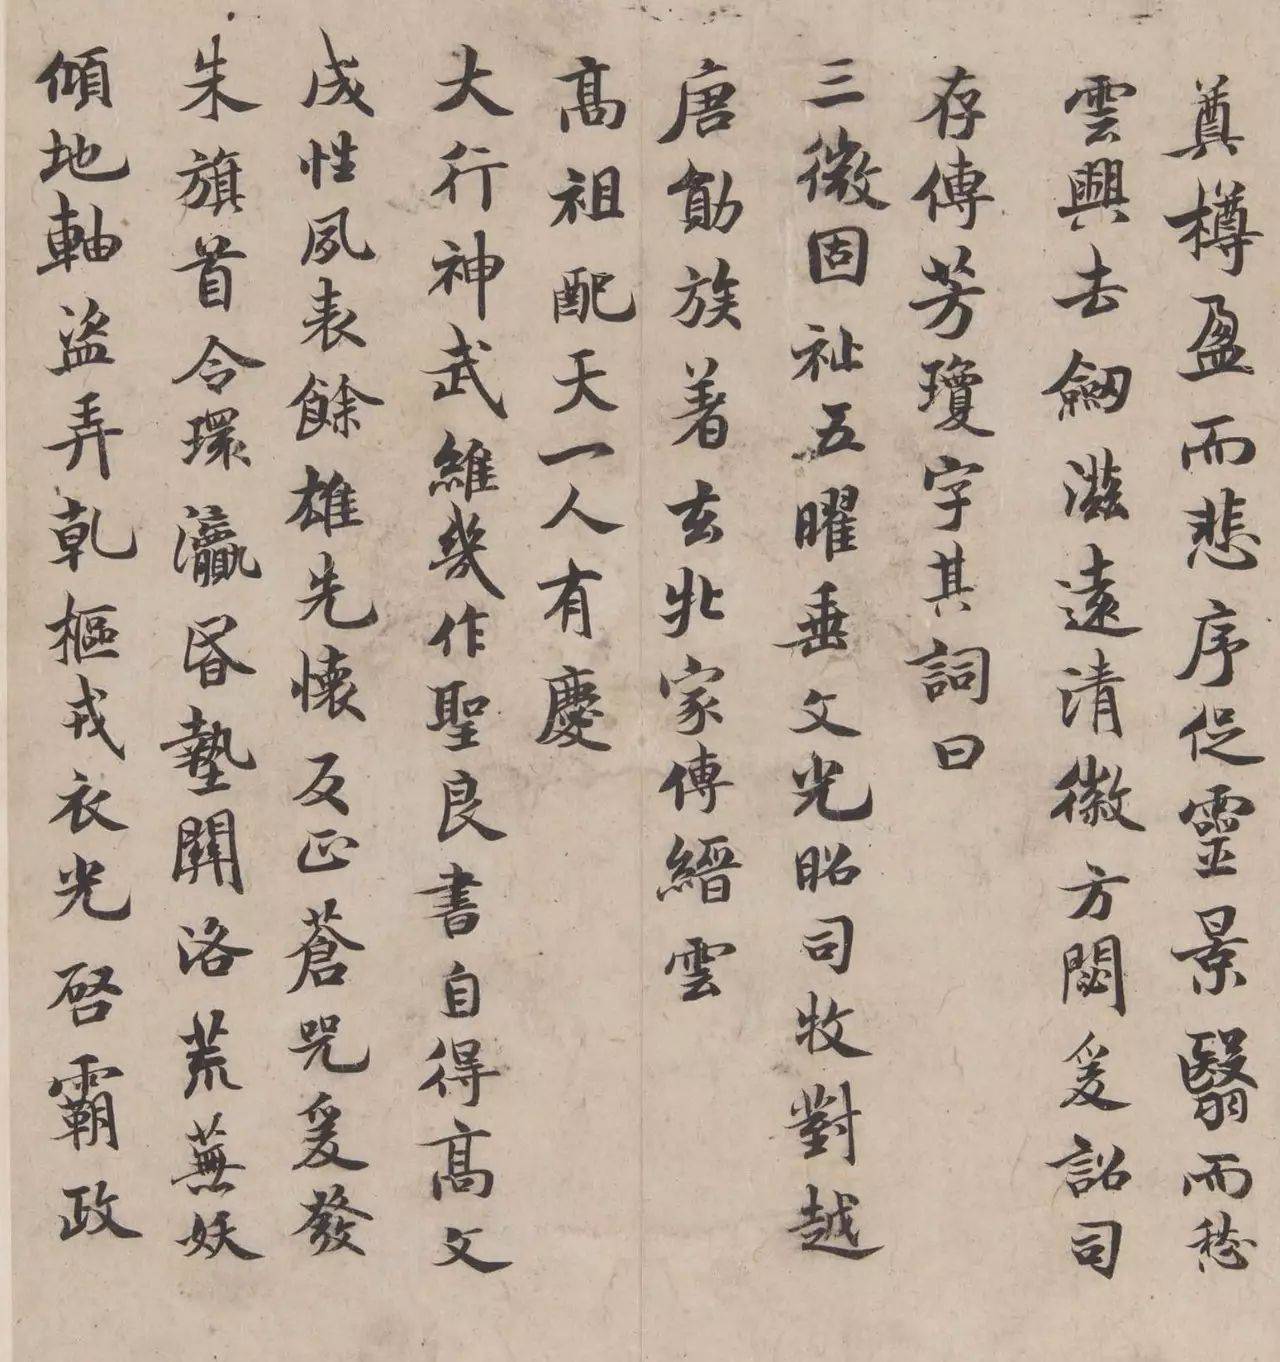 奠樽盈而悲序促靈景翳而愁
雲興去劒滋遠清徽方閟爰詔司
存傳芳瓊字其詞曰
三微固祉五曜垂文光昭司牧對越
唐勛族著玄牝家傳縉雲
高祖配天一人有慶
大行神武維幾作聖良書自得高文
成性夙表餘雄先懷反正蒼兕爰發
朱旗首令環瀛昏墊關洛荒蕪妖
傾地軸盜弄乾樞戎衣光啓霸政